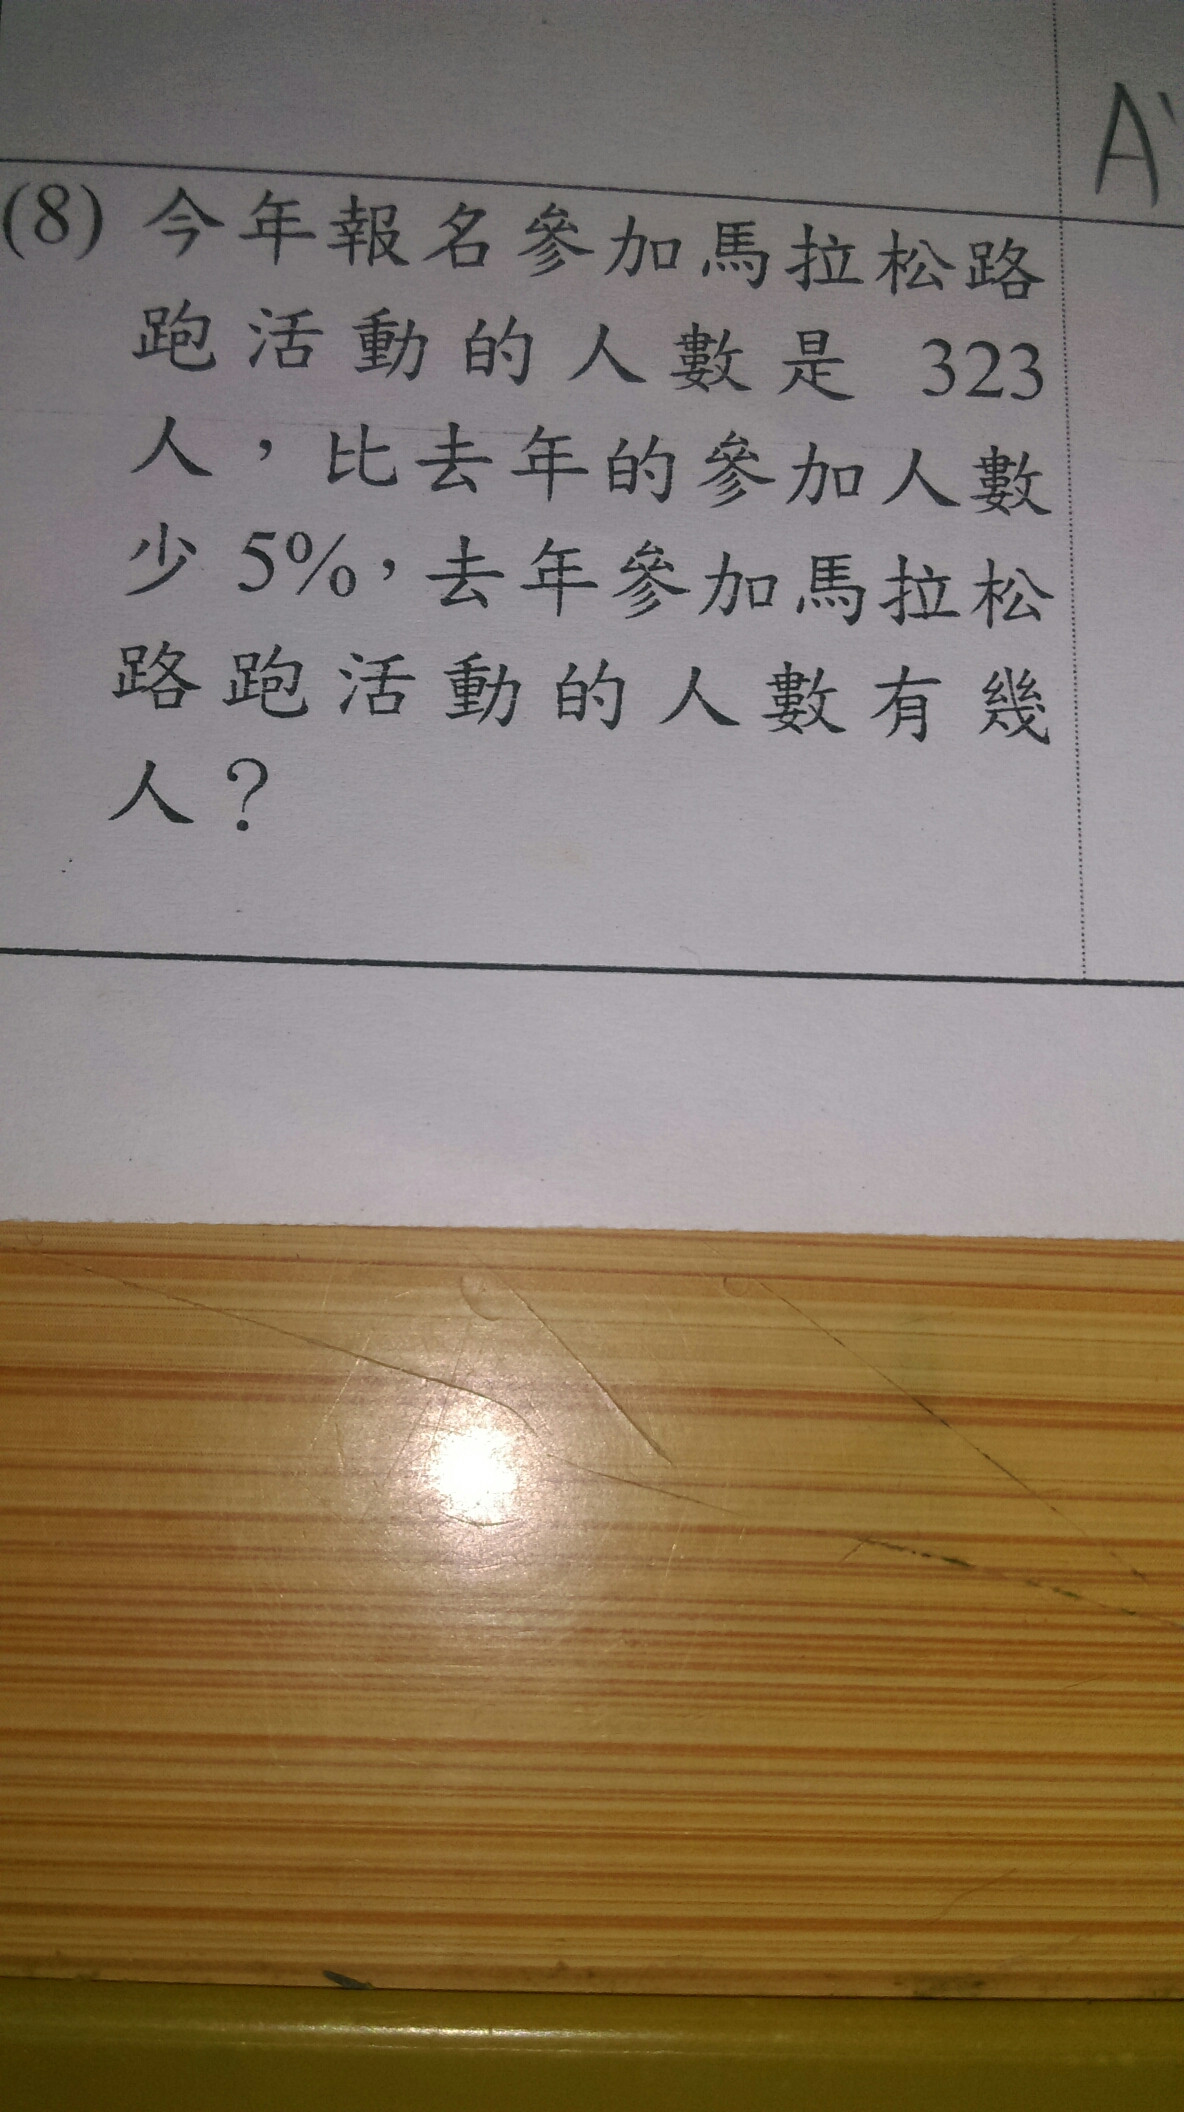 A
(8) 今年報名參加馬拉松路
跑活動的人數是 323
人，比去年的參加人數
少 5%，去年參加馬拉松
路跑活動的人數有幾
人？